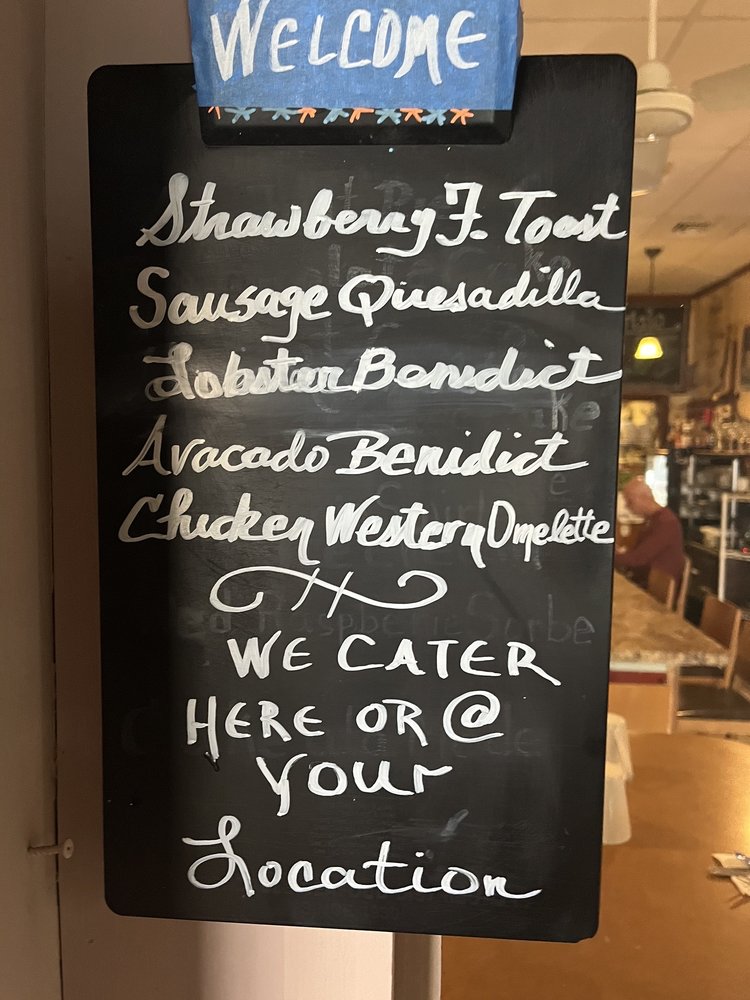 WELCOME
Strawberry F. Toast
Sausage Quesadilla
Lobster Benedict
Avacado Benidict
Chicken Western Omelette
WE CATER
HERE OR @
your
Location